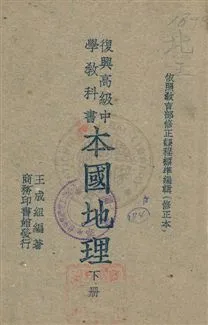 依照教育部修正課程標準編輯(修正本)
復興高級中
學教科書
本國地理
下册
王成組編著
商務印書館發行